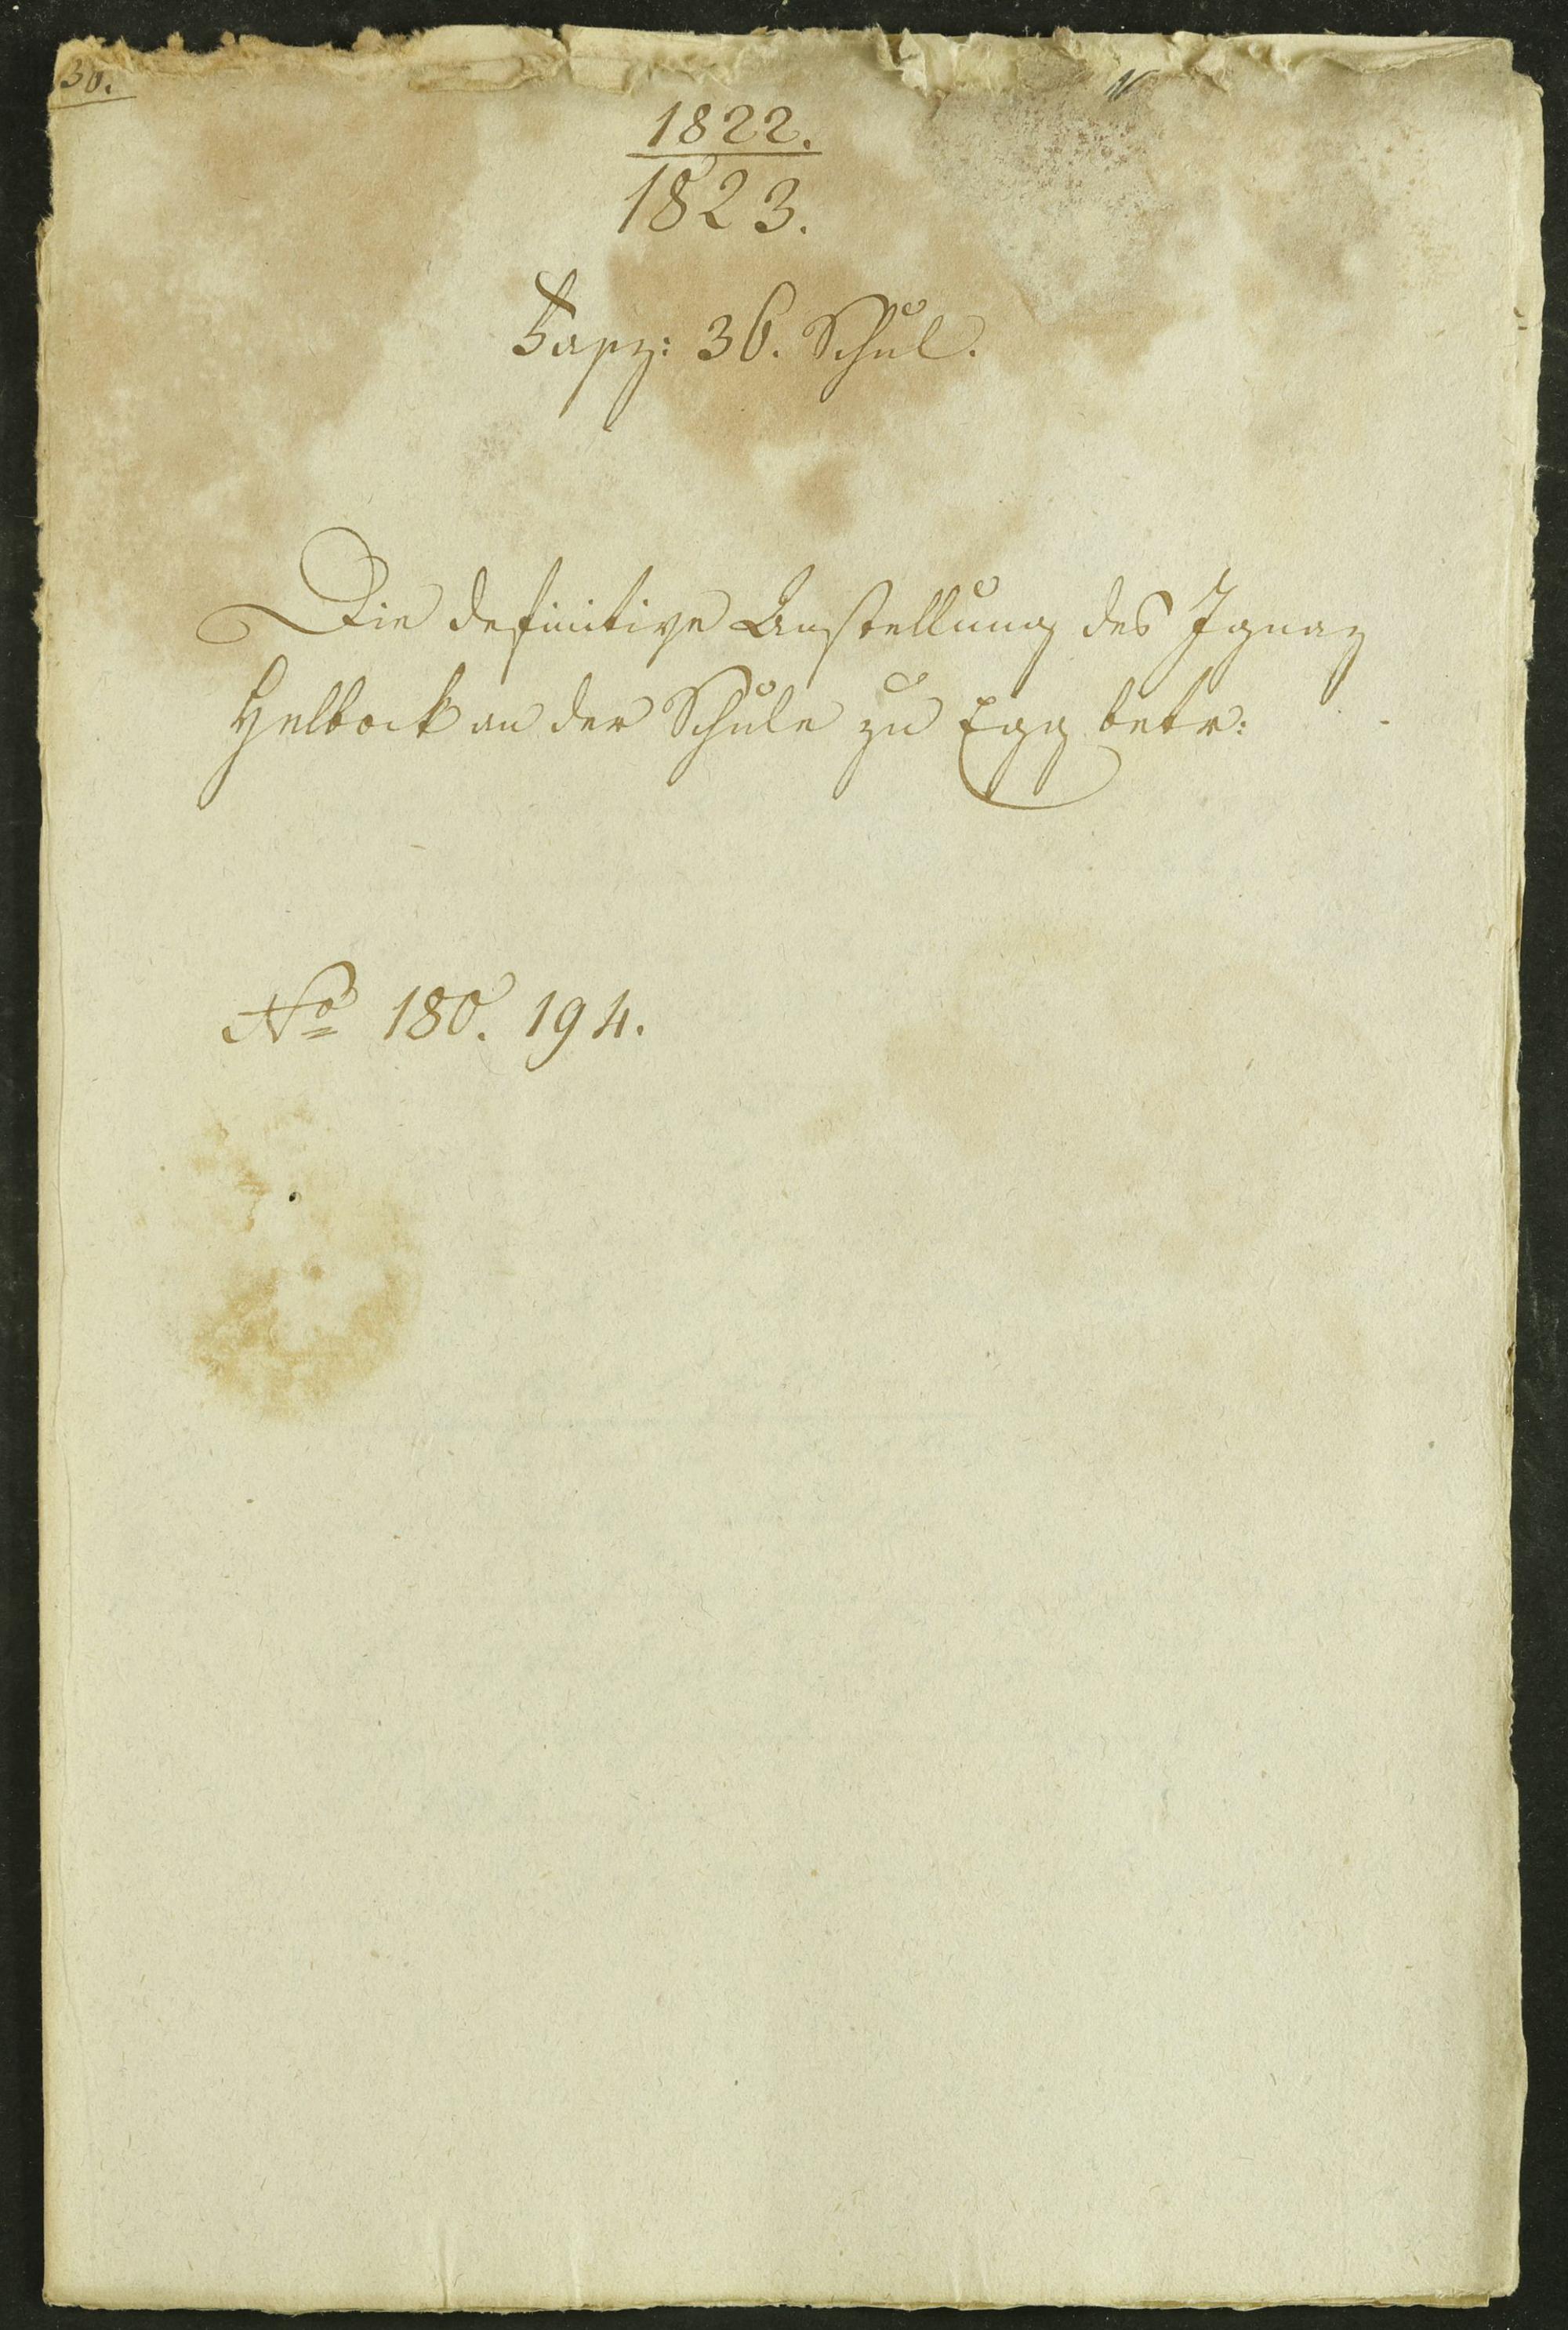 30.
1822.
1823.
Fasz: 36. Schul.
Die definitive Anstellung des Ignaz
Helbock an der Schule zu Egg betr:
No 180. 194.